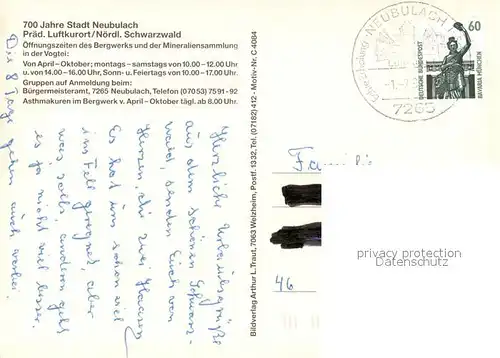 700 Jahre Stadt Neubulach
Präd. Luftkurort/Nördl. Schwarzwald
Öffnungszeiten des Bergwerks und der Mineraliensammlung
in der Vogtei:
Von April – Oktober; montags – samstags von 10.00 – 12.00 Uhr
u. von 14.00 – 16.00 Uhr, Sonn- u. Feiertags von 10.00 – 17.00 Uhr.
Gruppen auf Anmeldung beim:
Bürgermeisteramt, 7265 Neubulach, Telefon (07053) 7591-92
Asthmakuren im Bergwerk v. April – Oktober tägl. ab 8.00 Uhr.
Die 8 Tage gehen auch vorbei.
Herzliche Urlaubsgrüße
aus dem schönen Schwarz-
wald, senden Euch von
Herzen, die zwei
Es hat uns schon viel
ins Fell geregnet, aber
was solls, anderen geht
es ja nicht viel besser.
Bildverlag Arthur L. Traut, 7063 Welzheim, Postf. 1332, Tel. (07182) 412 - Motiv-Nr. C 4084
NEUBULACH
7265
60
DEUTSCHE BUNDESPOST
BAVARIA MÜNCHEN
46
privacy protection
Datenschutz